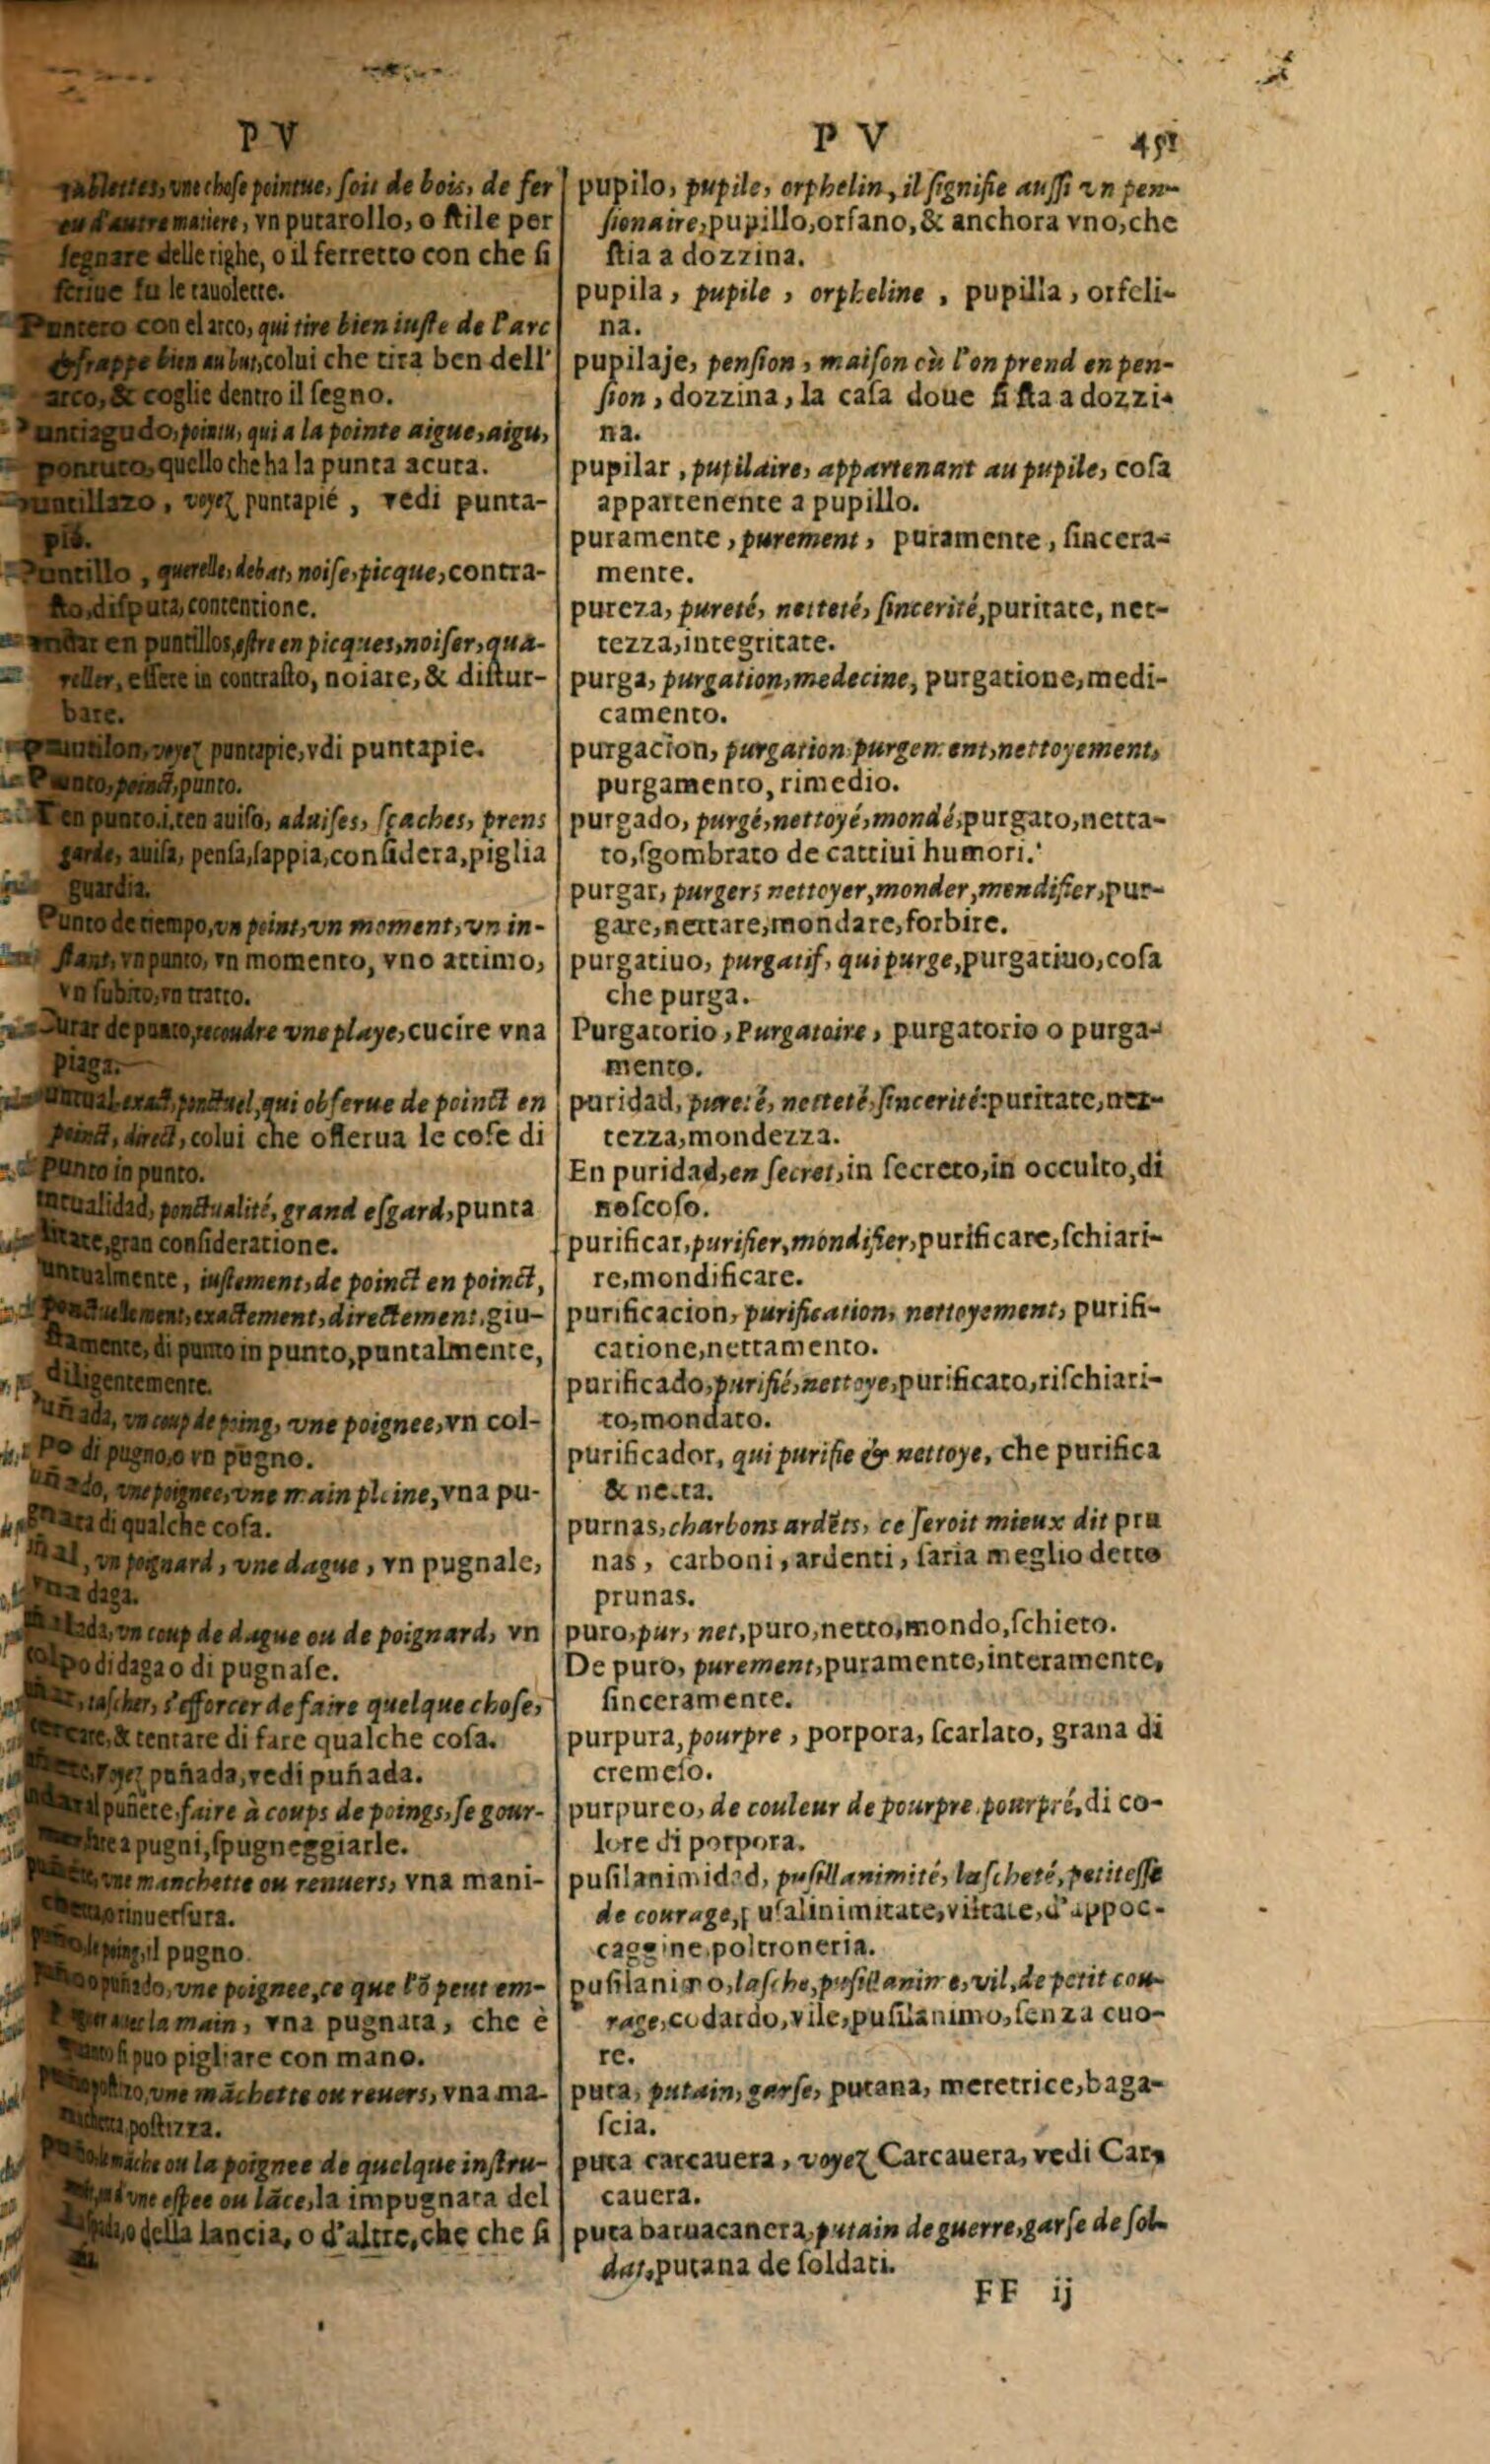 P V
P V 451
tablettes, vne chose pointue, soit de bois, de fer
ou d'autre matiere, vn putarollo, o stile per
segnare delle righe, o il ferretto con che si
scriue su le tauolette.
Puntero con el arco, qui tire bien iuste de l'arc
& frappe bien au but, colui che tira ben dell'
arco, & coglie dentro il segno.
Puntiagudo, pointu, qui a la pointe aigue, aigu,
pontuto, quello che ha la punta acuta.
puntillazo, voyez puntapié, vedi punta-
pié.
Puntillo, querelle, debat, noise, picque, contra-
sto, disputa, contentione.
andar en puntillos, estre en picques, noiser, qua-
reller, essere in contrasto, noiare, & distur-
bare.
voyez puntapie, vdi puntapie.
Punto, poinct, punto.
Ten punto. i. ten auiso, aduises, sçaches, prens
garde, auisa, pensa, sappia, considera, piglia
guardia.
Punto de tiempo, vn point, vn moment, vn in-
stant, vn punto, vn momento, vno attimo,
vn subito, vn tratto.
Jurar de punto, recoudre vne playe, cucire vna
piaga.
exact, ponctuel, qui obserue de poinct en
poinct, direct, colui che osserua le cose di
punto in punto.
ponctualité, grand esgard, punta
litate, gran consideratione.
iustement, de poinct en poinct,
ponctuellement, exactement, directement, giu-
stamente, di punto in punto, puntalmente,
diligentemente.
vn coup de poing, vne poignee, vn col-
po di pugno, o vn pugno.
vne poignee, vne main pleine, vna pu-
gnata di qualche cosa.
vn poignard, vne dague, vn pugnale,
vna daga.
vn coup de dague ou de poignard, vn
colpo di daga o di pugnale.
tascher, s'efforcer de faire quelque chose,
cercare, & tentare di fare qualche cosa.
voyez puñada, vedi puñada.
puñete, faire à coups de poings, se gour-
a pugni, spugneggiarle.
vne manchette ou renuers, vna mani-
o rinuersura.
le poing, il pugno.
o puñado, vne poignee, ce que l'õ peut em-
la main, vna pugnata, che è
si puo pigliare con mano.
vne mãchette ou reuers, vna ma-
postizza.
ou la poignee de quelque instru-
vne espee ou lãce, la impugnata del
o della lancia, o d'altre, che che si
pupilo, pupile, orphelin, il signifie aussi vn pen-
sionaire, pupillo, orfano, & anchora vno, che
stia a dozzina.
pupila, pupile, orpheline, pupilla, orfeli-
na.
pupilaje, pension, maison où l'on prend en pen-
sion, dozzina, la casa doue si sta a dozzi-
na.
pupilar, pupilaire, appartenant au pupile, cosa
appartenente a pupillo.
puramente, purement, puramente, sincera-
mente.
pureza, pureté, netteté, sincerité, puritate, net-
tezza, integritate.
purga, purgation, medecine, purgatione, medi-
camento.
purgacion, purgation, purgement, nettoyement,
purgamento, rimedio.
purgado, purgé, nettoyé, mondé, purgato, netta-
to, sgombrato de cattiui humori.
purgar, purger, nettoyer, monder, mendifier, pur-
gare, nettare, mondare, forbire.
purgatiuo, purgatif, qui purge, purgatiuo, cosa
che purga.
Purgatorio, Purgatoire, purgatorio o purga-
mento.
puridad, pureté, netteté, sincerité: puritate, net-
tezza, mondezza.
En puridad, en secret, in secreto, in occulto, di
noscoso.
purificar, purifier, mondifier, purificare, schiari-
re, mondificare.
purificacion, purification, nettoyement, purifi-
catione, nettamento.
purificado, purifié, nettoye, purificato, rischiari-
to, mondato.
purificador, qui purifie & nettoye, che purifica
& netta.
purnas, charbons ardẽts, ce seroit mieux dit pru
nas, carboni, ardenti, saria meglio detto
prunas.
puro, pur, net, puro, netto, mondo, schieto.
De puro, purement, puramente, interamente,
sinceramente.
purpura, pourpre, porpora, scarlato, grana di
cremeso.
purpureo, de couleur de pourpre, pourpré, di co-
lore di porpora.
pusilanimidad, pusillanimité, lascheté, petitesse
de courage, pusalinimitate, viltate, d'appoc-
caggine, poltroneria.
pusilanimo, lasche, pusillanime, vil, de petit cou-
rage, codardo, vile, pusilanimo, senza cuo-
re.
puta, putain, garse, putana, meretrice, baga-
scia.
puta carcauera, voyez Carcauera, vedi Car,
cauera.
puta baruacanera, putain de guerre, garse de sol-
dat, putana de soldati.
FF ij